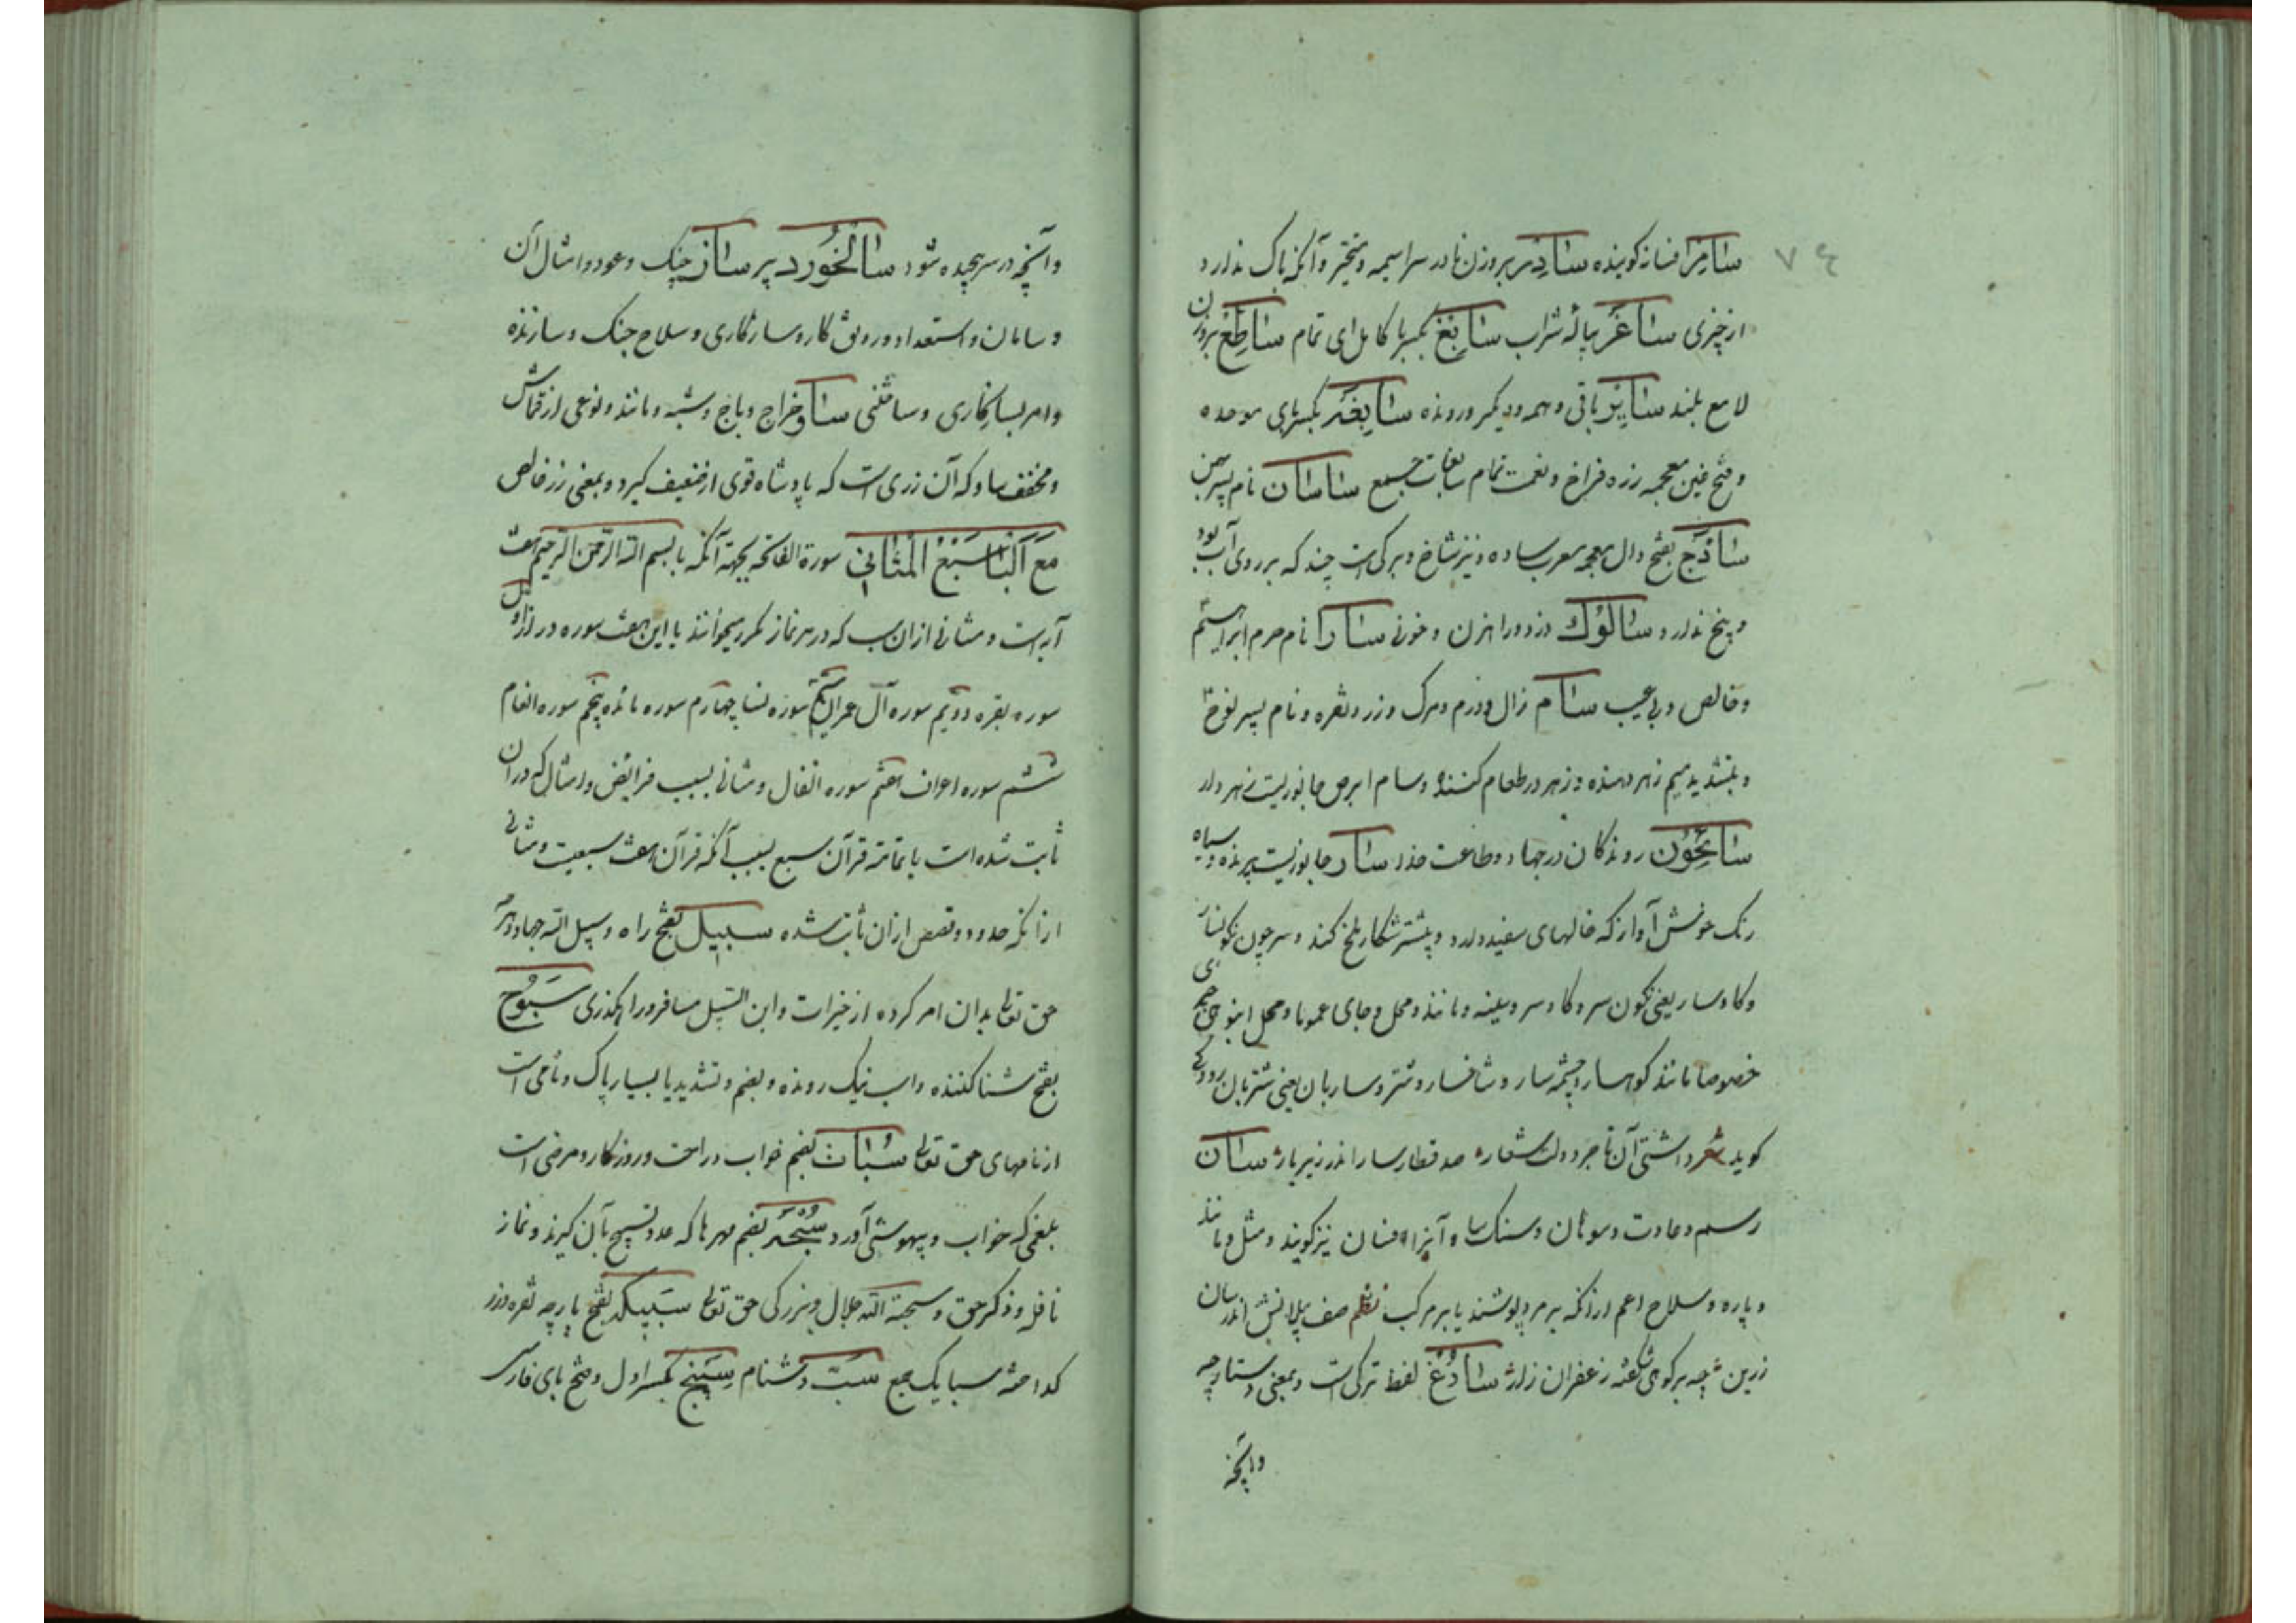 ۷۴
سامر افسانه کوینده سادر بر وزن نادر سراسیمه و متحیر و آنکه باک ندارد
از چیزی ساغر پیاله شراب سابغ بکسر با کامل ای تمام ساطع بروزن
لامع بلند سایر باقی و همه و دیکر و رونده سابغه بکسر بای موحده
و فتح غین معجمه زره فراخ و نعمت تمام سابغات جمع ساسان نام پسر بهمن
ساذج بفتح ذال معجمه معرب ساده و نیز شاخ و برکی است چند که بر روی آب بود
و بیخ ندارد سالوک دزد و راهزن و خونی سارا نام حرم ابراهیم
و خالص و بی عیب سام زال و ورم و مرک و زر و نقره و نام پسر نوح
و بتشدید میم زهر دهنده و زهر در طعام کننده و سام ابرص جانوریست زهر دار
سائحون روندکان در جهاد و طاعت خدا سار جانوریست پرنده و سیاه
رنک خوش آواز که خالهای سفید دارد و بیشتر شکار ملخ کند و سر چون نکونسار
و کاوسار یعنی نکون سر و کاو سر و بینه و مانند و محل و جای عموما و محل انبوهی
خصوصا مانند کوهسار و چشمه سار و شاخسار و شتر و ساربان یعنی شتربان رودکی
کوید شعر داشتی آن تاجر دولت شعار صد قطار سار اندر زیر بار سان
رسم و عادت و سوهان و سنک سا و آنرا افسان نیز کویند و مثل و مانند
و پاره و سلاح اعم از آنکه بر مرد پوشند یا بر مرکب نظم صف پیلانش اندر سان
زرین چه بر کوهی شکفته زعفران زار سادغ لفظ ترکی است و بمعنی دستارچه
وانچه
وانچه در سر پیچیده شود سالخورد پیر ساز چنک و عود و امثال آن
و سامان و استعداد و رونق کار و سازکاری و سلاح جنک و سازنده
و امر بسازکاری و ساختنی ساو خراج و باج و شبه و مانند و نوعی از قماش
و مخفف ساو که آن زری است که پادشاه قوی از ضعیف کیرد و بمعنی زر خالص
مع البا سبع المثانی سورة الفاتحه بجهة آنکه با بسم الله الرحمن الرحیم هفت
آیه است و مثانی از ان سبب که در هر نماز مکرر میخوانند یا این هفت سوره دراز اول
سوره بقره دویم سوره آل عمران سیم سوره نسا چهارم سوره مائده پنجم سوره انعام
ششم سوره اعراف هفتم سوره انفال و مثانی بسبب فرایض و امثال که در ان
ثابت شده است یا تمامه قرآن سبع بسبب آنکه قرآن هفت سبعیت و مثانی
از آنکه حدود و قصص از ان ثابت شده سبیل بفتح راه و سبیل الله جهاد و هرچه
حق تعالی بدان امر کرده از خیرات و ابن السبیل مسافر و راهکذری سبوح
بفتح شناکننده و اسب نیک رونده و بضم و تشدید با بسیار پاک و نامی است
از نامهای حق تعالی سبات بضم خواب و راحت و روزکار و مرضی است
بلغمی که خواب و بیهوشی آورد سبحه بضم مهرها که عدد تسبیح بآن کیرند و نماز
نافله و ذکر حق و سبحة الله جلال و بزرکی حق تعالی سبیکه بفتح پارچه نقره و زر
کداخته سبایک جمع سبّ دشنام سپنج بکسر اول و فتح بای فارسی